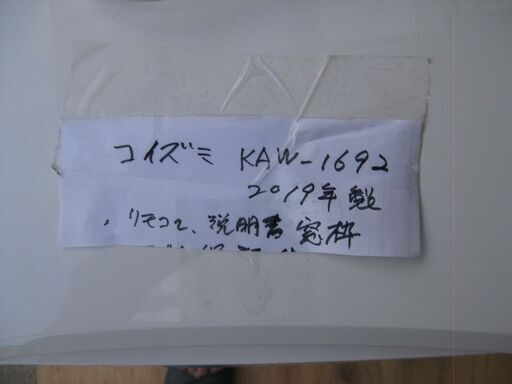 コイズミ KAW-1692
2019年製
、リモコン、説明書 窓枠